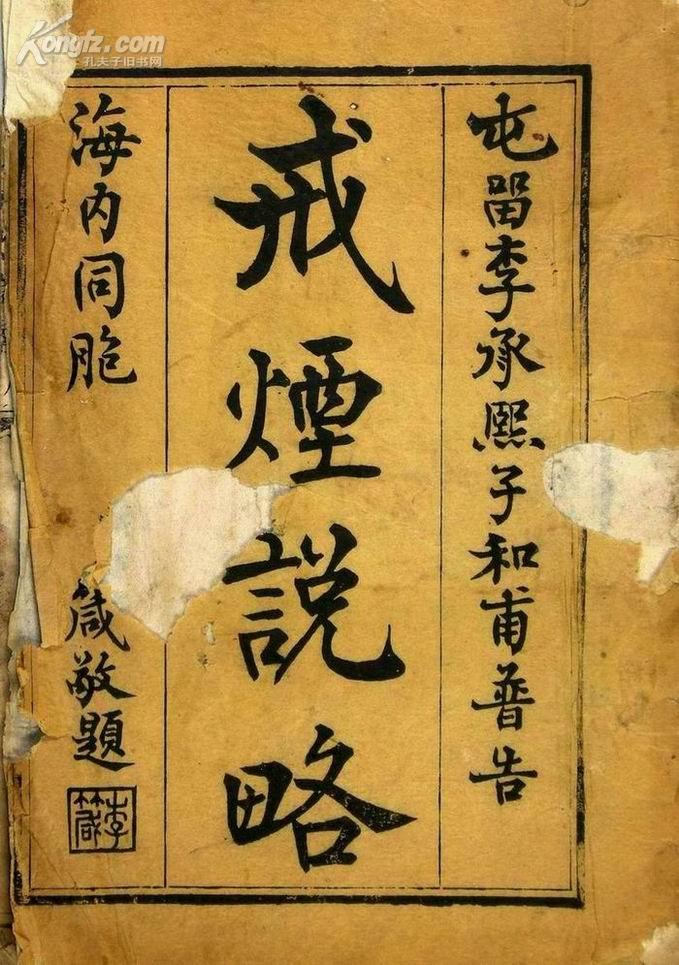 Kongfz.com
孔夫子旧书网
屯留李承熙子和甫普告
戒煙說略
海内同胞
箴敬題
李箴